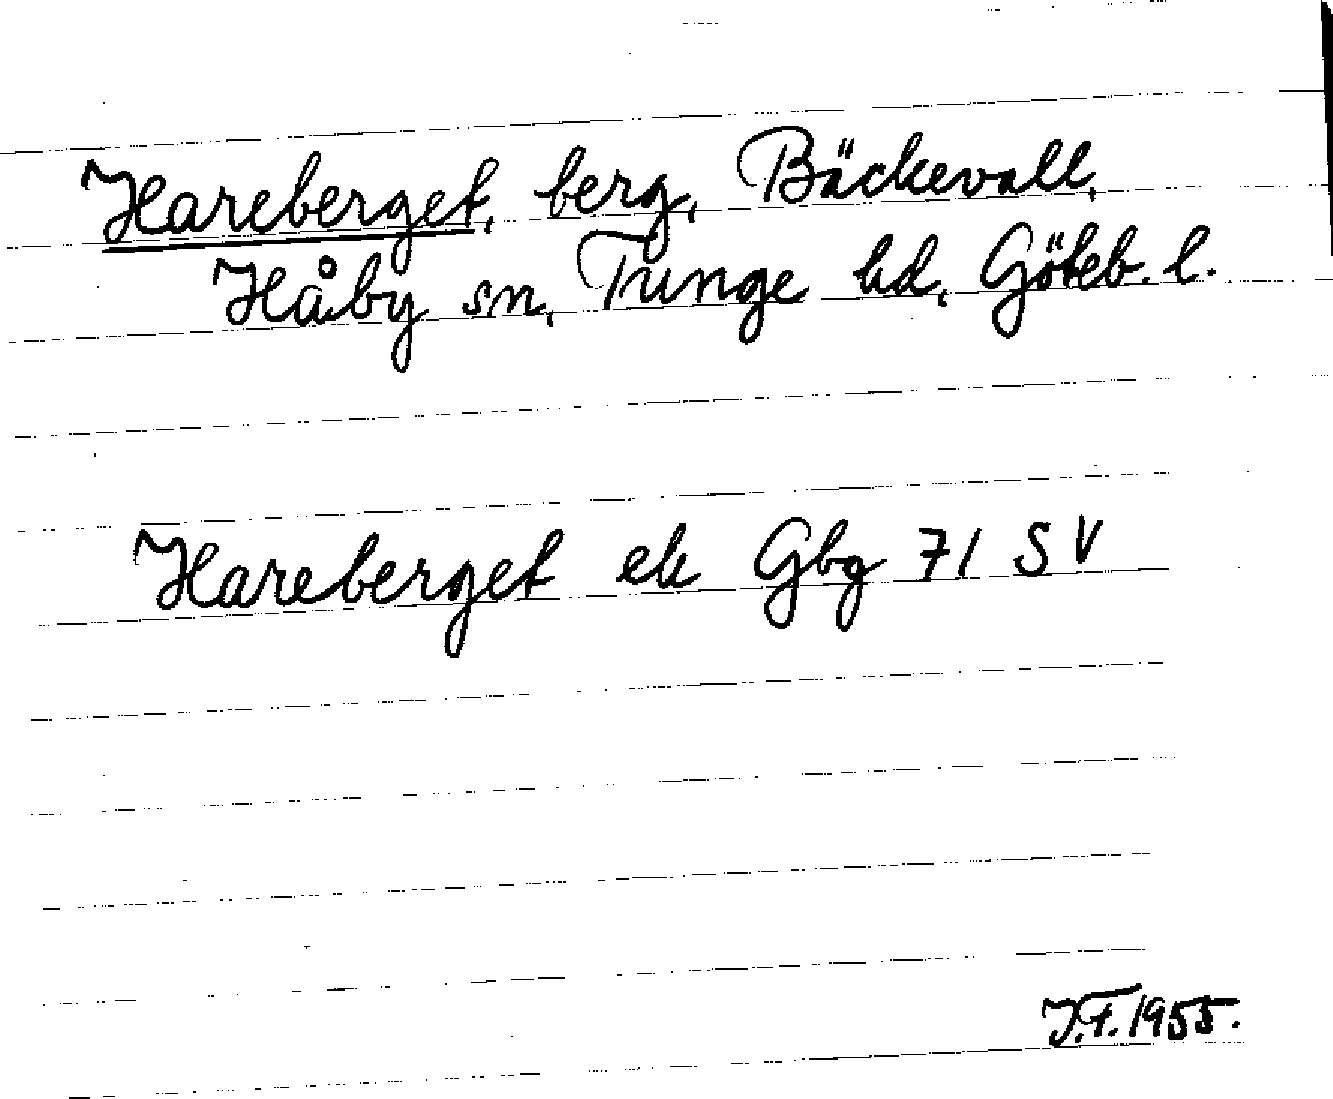 Hareberget, berg, Bäckevall,
Håby sn, Tunge hd, Göteb. l.
Hareberget ek Gbg 71 SV
J.F. 1955.